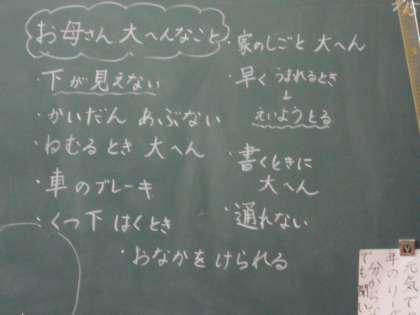 お母さん 大へんなこと
・下が見えない
・かいだん あぶない
・ねむるとき 大へん
・車のブレーキ
・くつ下 はくとき
・家のしごと 大へん
・早く うまれるとき
↓
えいようとる
・書くときに
大へん
・通れない
・おなかを けられる
元気で